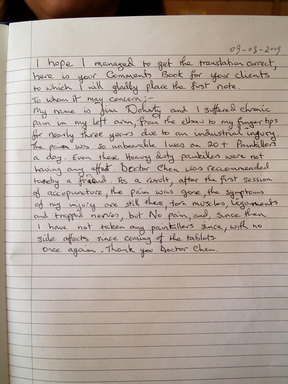 09-03-2009
I hope I managed to get the translation correct,
here is your Comments Book for your clients
to which I will gladly place the first note.
To whom it may concern;-
My name is Jim Doherty and I suffered chronic
pain in my left arm, from the elbow to my fingertips
for nearly three years due to an industrial injury.
The pain was so unbearable I was on 20+ Painkillers
a day. Even these Heavy duty painkillers were not
having any effect Doctor Chen was recommended
to me by a friend. As a result, after the first session
of accupuncture, the pain was gone, the symptoms
of my injury are still there, torn muscles, Legaments
and trapped nerves, but No pain, and, since then
I have not taken any painkillers since, with no
side affects since coming of the tablets
Once again, Thank you Doctor Chen.